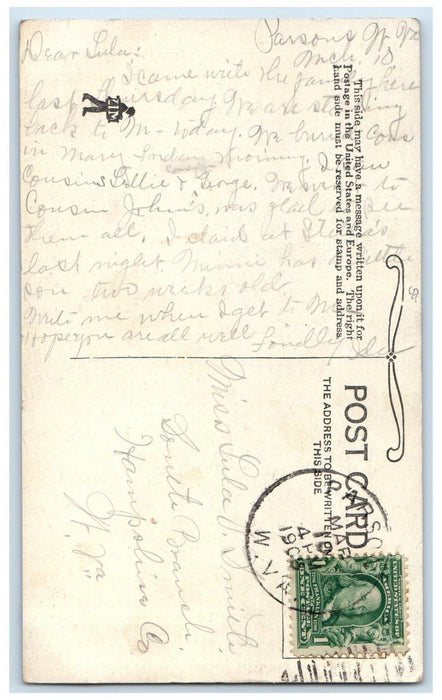 Parsons W Va
Mch, 10
Dear Lula:
I came with the family here
last Thursday We are
back to M- today. We
in Mary Friday morning. I
Cousins Lillie & George. We went to
Cousin John's, was glad to see
them all. I
last night. Minnie has a little
son two weeks old
Write me when I get to M
Hope you are all well
Fondly
This side may have a message written upon it for
Postage in the United States and Europe. The right
hand side must be reserved for stamp and address
POST CARD
THE ADDRESS TO BE WRITTEN ON
THIS SIDE
Miss Lula V. Smith
South Branch
Hampshire Co
W. Va
PARSO
MAR
10
4 PM
190
W. VA.
1